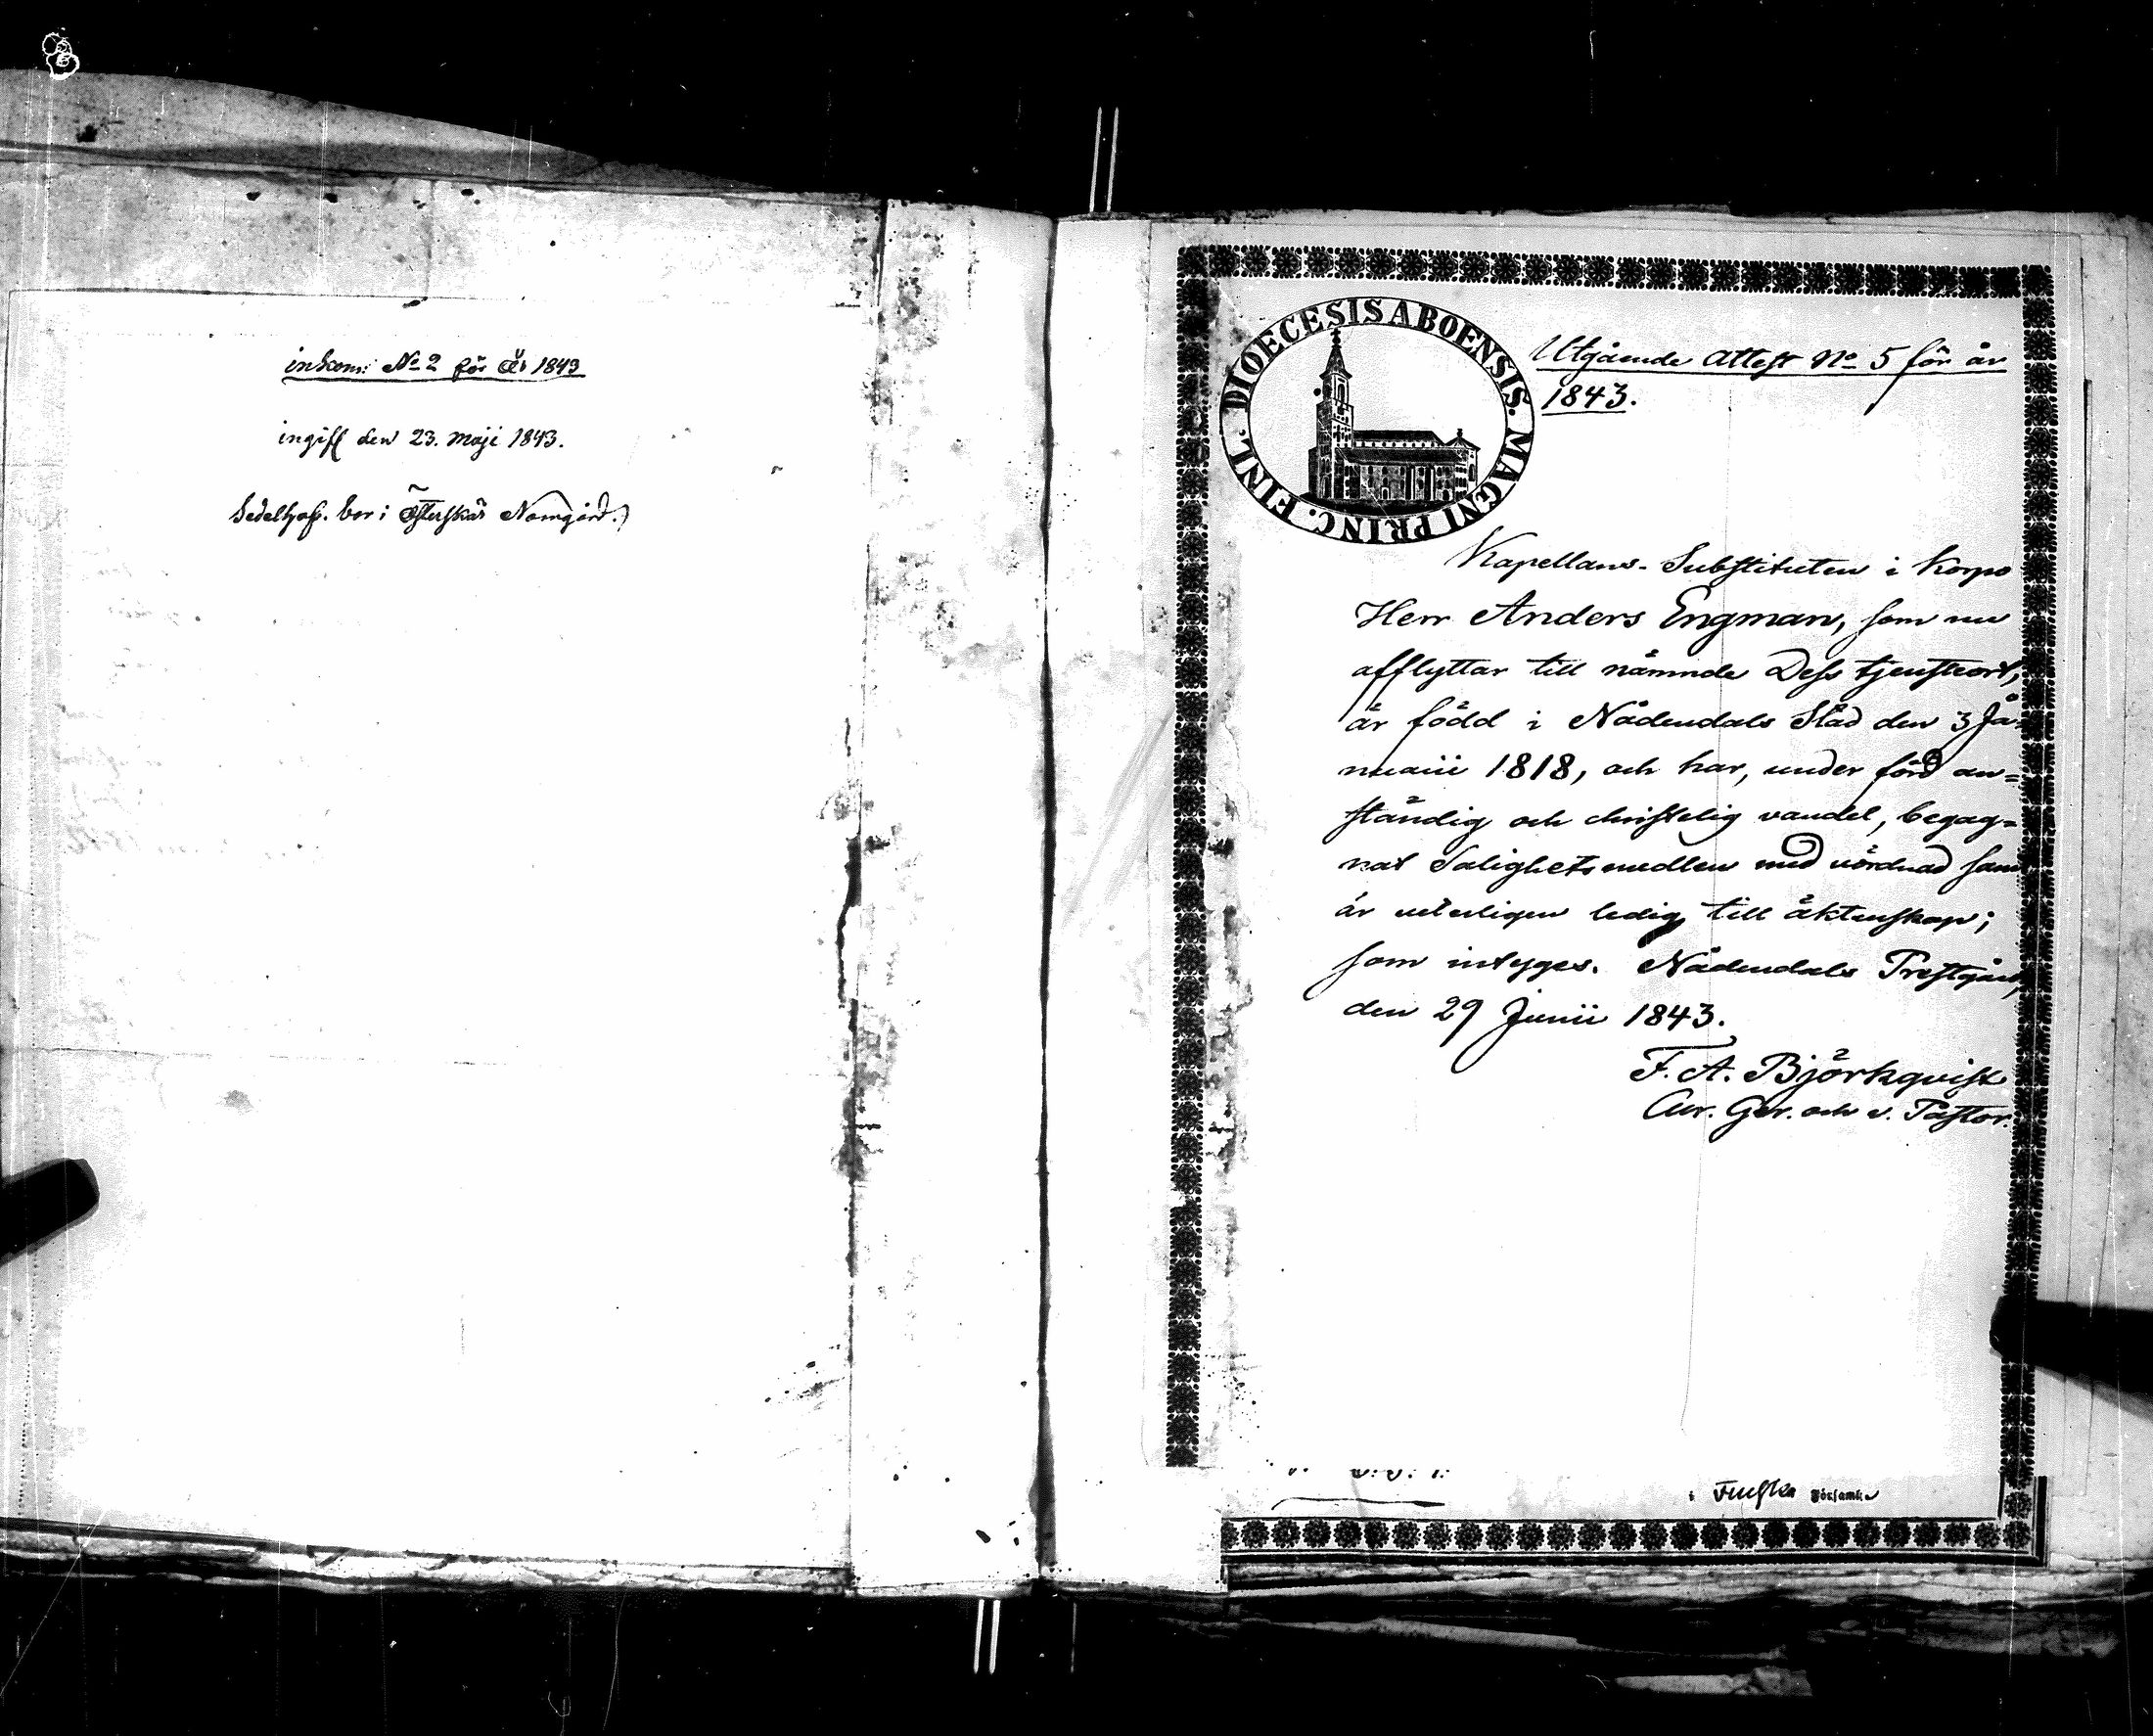 inkom: No 2 för år 1843
ingift den 23. Maji 1843.
bor i Österskär Norrgård.)
DIOECESIS ABOENSIS. MAGNI PRINC. FINL.
Utgående Attest No 5 för år
1843.
Kapellans-Substituten i Korpo
Herr Anders Engman, som nu
afflyttar till nämnde Dess tjensteort,
är född i Nådendals Stad den 3 Ja-
nuarii 1818, och har, under förd an=
ständig och christelig vandel, begag=
nat Salighetsmedlen med vördnad samt
är veterligen ledig till äktenskap;
som intyges. Nådendals Prestgård,
den 29 Junii 1843.
F. A. Björkqvist
Cur. Ger. och v. Pastor.
i Finska Församl.